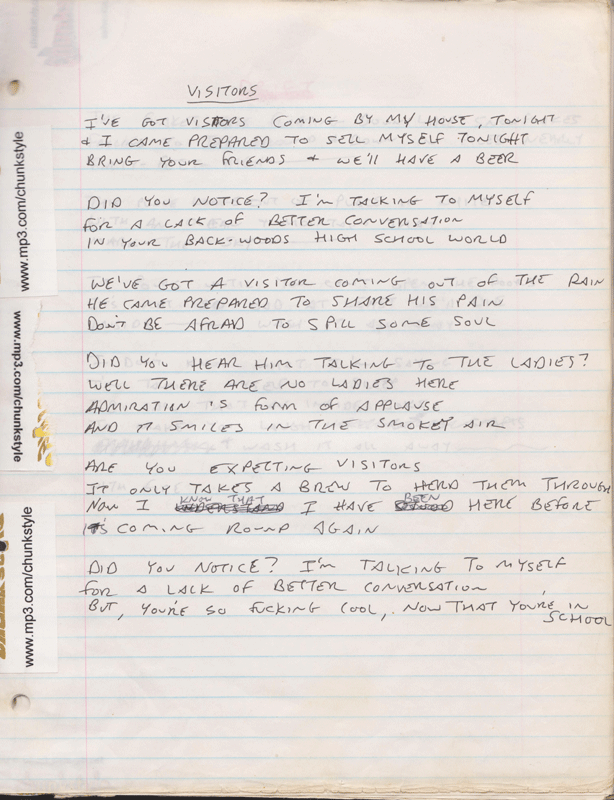 VISITORS
I'VE GOT VISITORS COMING BY MY HOUSE, TONIGHT
& I CAME PREPARED TO SELL MYSELF TONIGHT
BRING YOUR FRIENDS & WE'LL HAVE A BEER
DID YOU NOTICE? I'M TALKING TO MYSELF
FOR A LACK OF BETTER CONVERSATION
IN YOUR BACK-WOODS HIGH SCHOOL WORLD
WE'VE GOT A VISITOR COMING OUT OF THE RAIN
HE CAME PREPARED TO SHARE HIS PAIN
DON'T BE AFRAID TO SPILL SOME SOUL
DID YOU HEAR HIM TALKING TO THE LADIES?
WELL THERE ARE NO LADIES HERE
ADMIRATION IS FORM OF APPLAUSE
AND IT SMILES IN THE SMOKEY AIR
ARE YOU EXPECTING VISITORS
IT ONLY TAKES A BREW TO HERD THEM THROUGH
NOW I KNOW THAT I HAVE BEEN HERE BEFORE
IT'S COMING ROUND AGAIN
DID YOU NOTICE? I'M TALKING TO MYSELF
FOR A LACK OF BETTER CONVERSATION
BUT, YOU'RE SO FUCKING COOL, NOW THAT YOU'RE IN
SCHOOL
www.mp3.com/chunkstyle
www.mp3.com/chunkstyle
www.mp3.com/chunkstyle